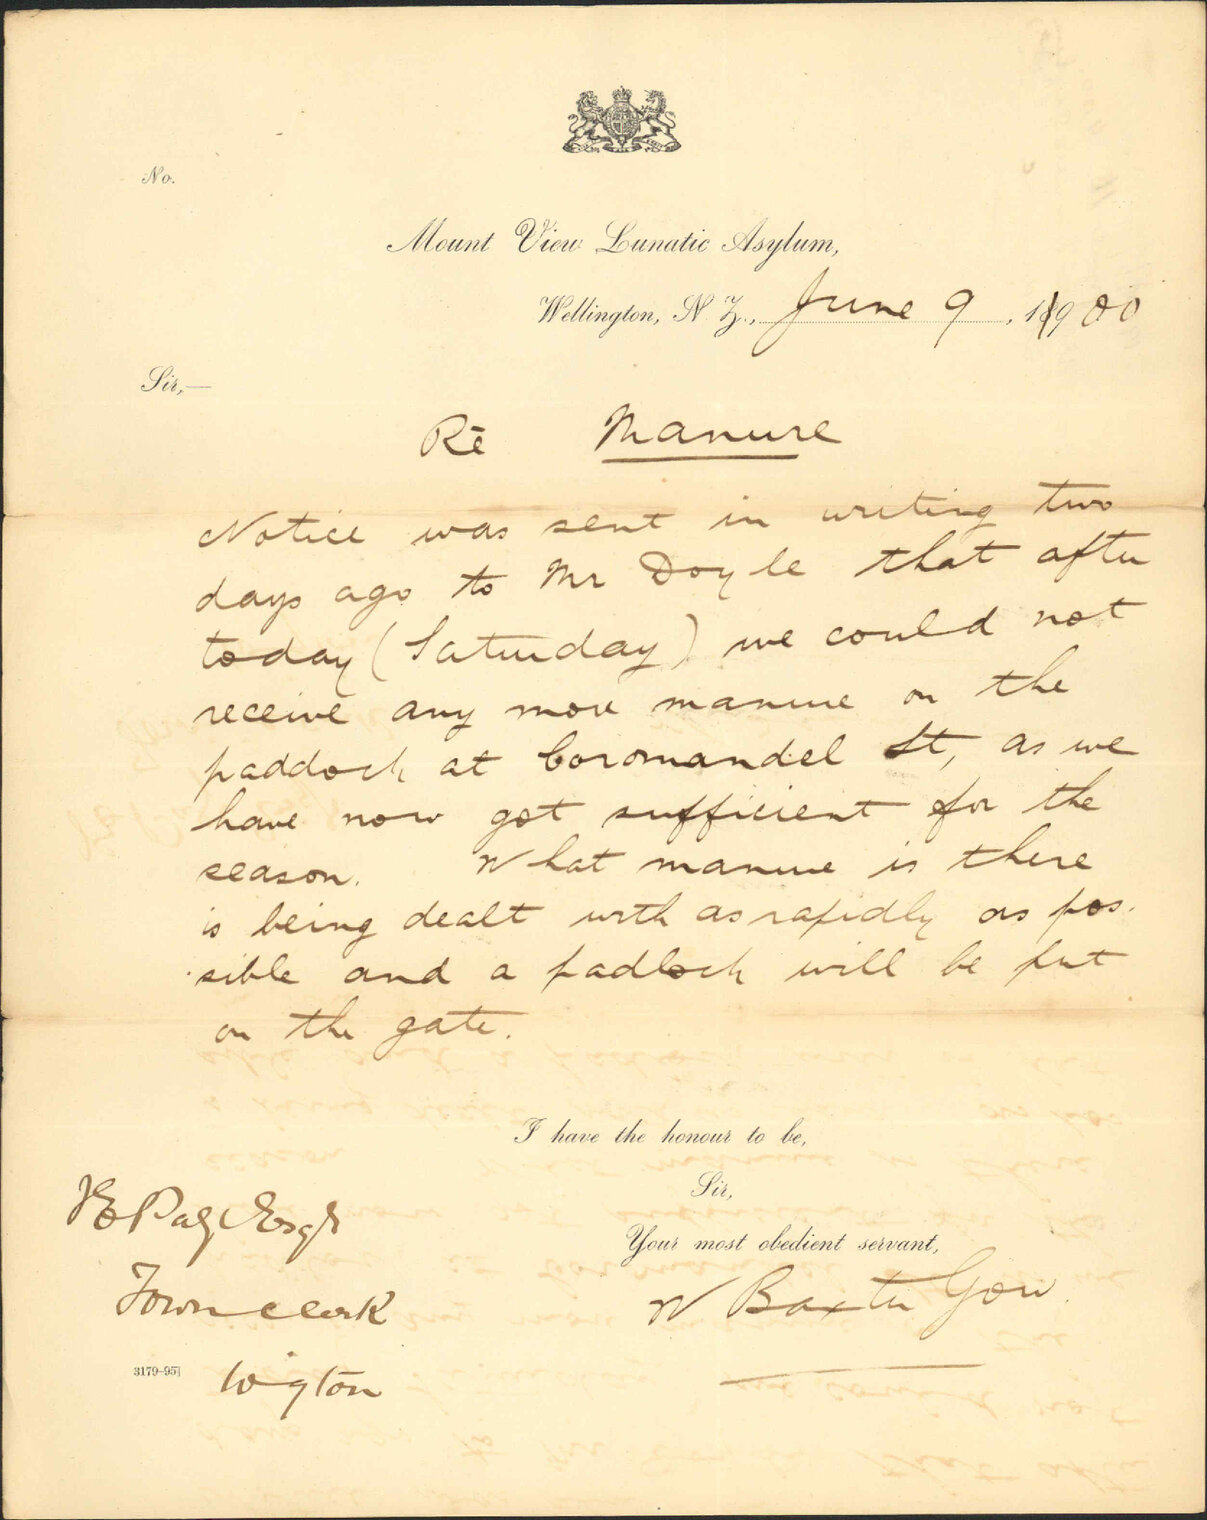 No.
Mount View Lunatic Asylum,
Wellington, N. Z., June 9, 1900
Sir,—
Re Manure
Notice was sent in writing two
days ago to Mr Doyle that after
today (Saturday) we could not
receive any more manure on the
paddock at Coromandel St, as we
have now got sufficient for the
season. What manure is there
is being dealt with as rapidly as pos-
sible and a padlock will be put
on the gate.
I have the honour to be,
Sir,
Your most obedient servant,
W Baxter Gow
Page Esqr
Town Clerk
3179-95]
Wgton